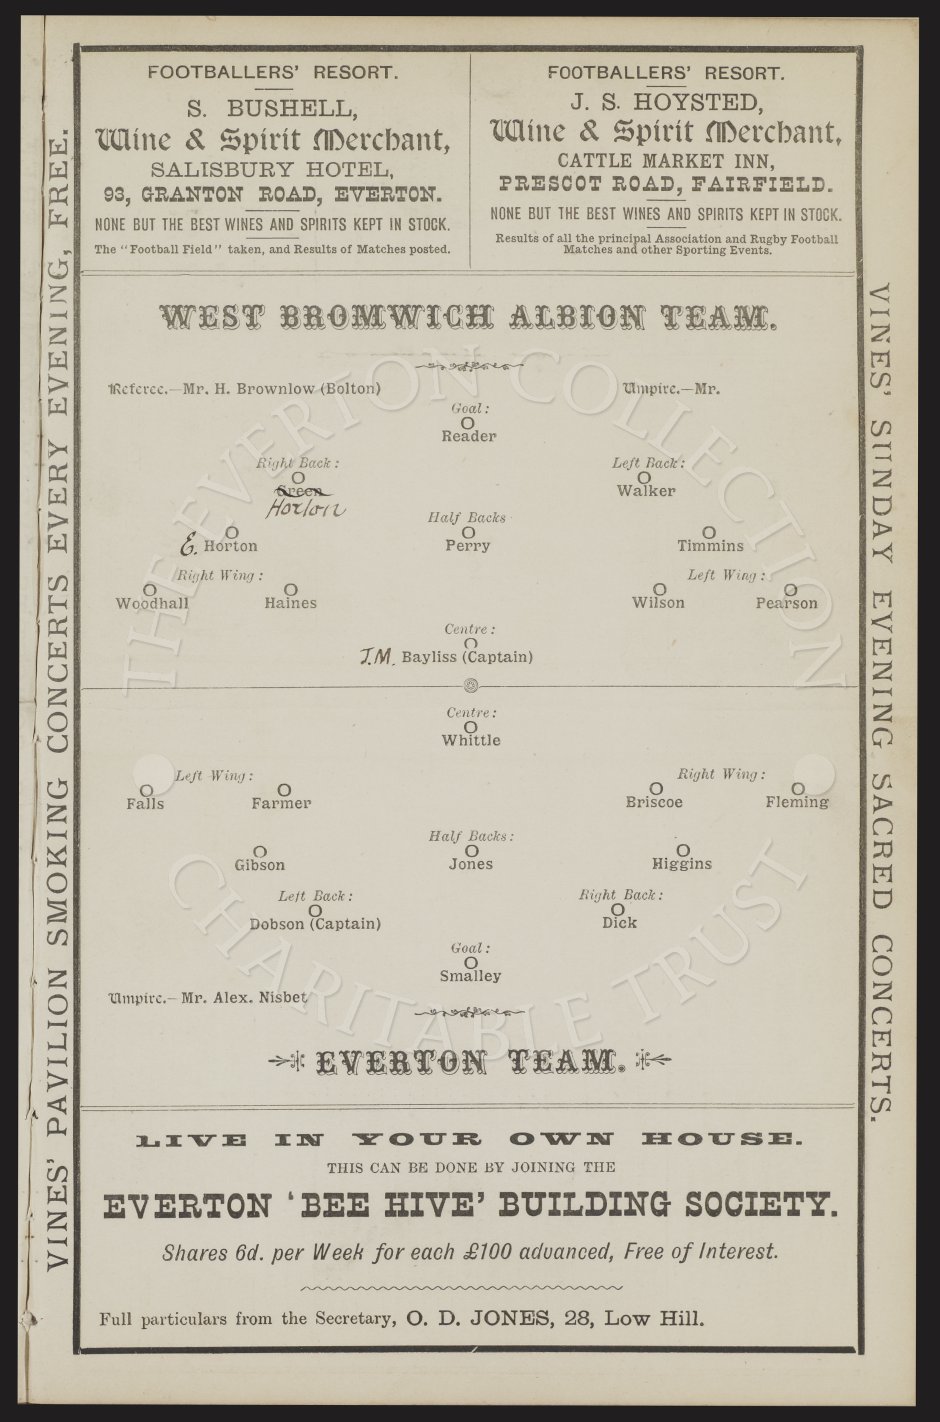 VINES' PAVILION SMOKING CONCERTS EVERY EVENING, FREE.
FOOTBALLERS' RESORT.
S. BUSHELL,
Wine & Spirit Merchant,
SALISBURY HOTEL,
93, GRANTON ROAD, EVERTON.
NONE BUT THE BEST WINES AND SPIRITS KEPT IN STOCK.
The "Football Field" taken, and Results of Matches posted.
FOOTBALLERS' RESORT.
J. S. HOYSTED,
Wine & Spirit Merchant,
CATTLE MARKET INN,
PRESCOT ROAD, FAIRFIELD.
NONE BUT THE BEST WINES AND SPIRITS KEPT IN STOCK.
Results of all the principal Association and Rugby Football
Matches and other Sporting Events.
WEST BROMWICH ALBION TEAM.
Referee.—Mr. H. Brownlow (Bolton) Umpire.—Mr.
Goal:
Reader
Right Back: Left Back:
Green Walker
Horton
Half Backs
E. Horton Perry Timmins
Right Wing: Left Wing:
Woodhall Haines Wilson Pearson
Centre:
J.M. Bayliss (Captain)
Centre:
Whittle
Left Wing: Right Wing:
Falls Farmer Briscoe Fleming
Half Backs:
Gibson Jones Higgins
Left Back: Right Back:
Dobson (Captain) Dick
Goal:
Smalley
Umpire.—Mr. Alex. Nisbet
EVERTON TEAM.
LIVE IN YOUR OWN HOUSE.
THIS CAN BE DONE BY JOINING THE
EVERTON 'BEE HIVE' BUILDING SOCIETY.
Shares 6d. per Week for each £100 advanced, Free of Interest.
Full particulars from the Secretary, O. D. JONES, 28, Low Hill.
VINES' SUNDAY EVENING SACRED CONCERTS.
THE EVERTON COLLECTION
CHARITABLE TRUST